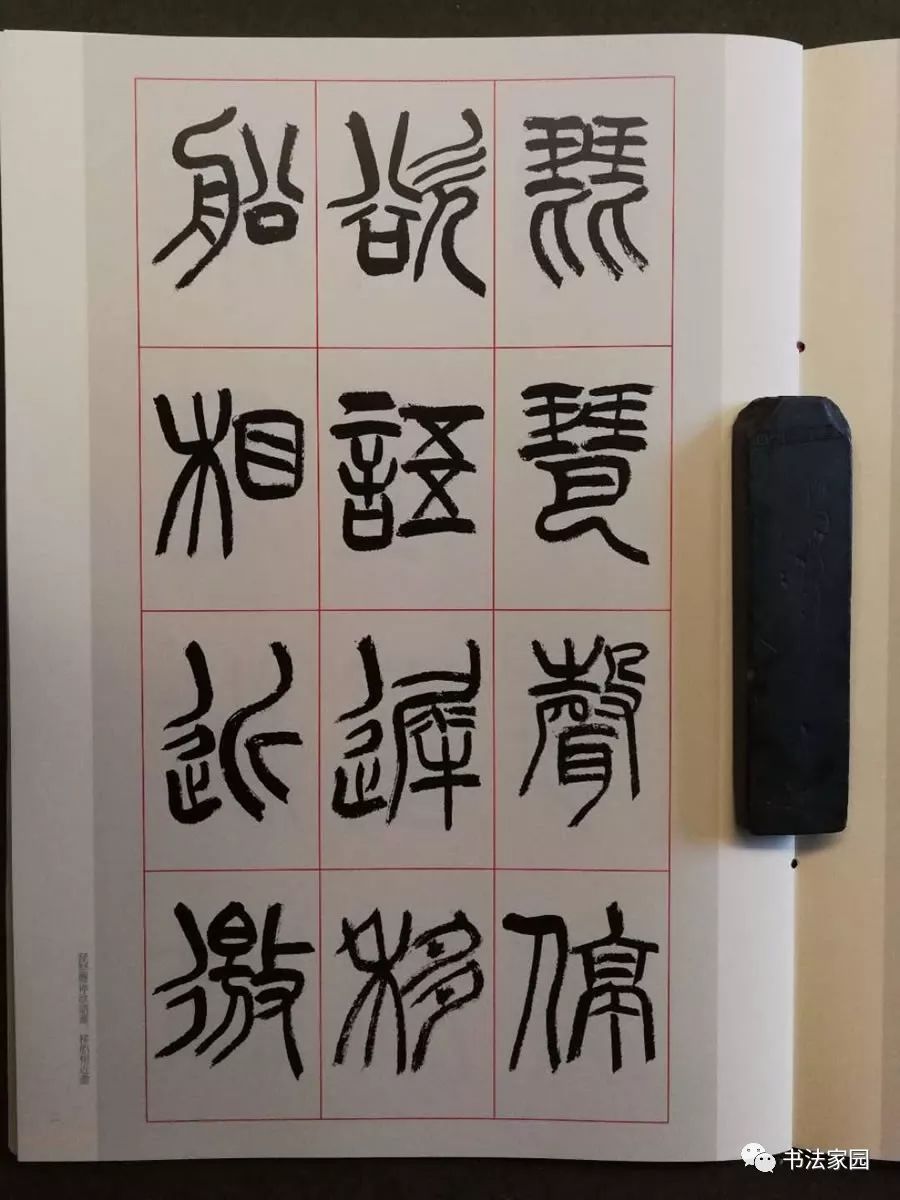 琵琶聲停
欲語遲移
船相近邀
书法家园